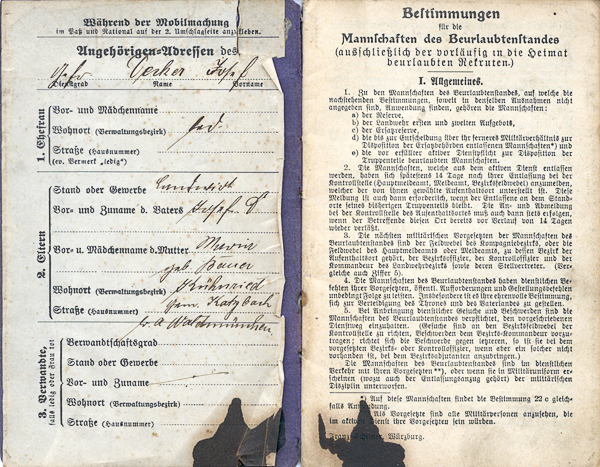 Während der Mobilmachung
im Paß und National auf der 2. Umschlagseite anzukleben.
Angehörigen-Adressen des
Josef
Dienstgrad Name Vorname
1. Ehefrau
Vor- und Mädchenname
Wohnort (Verwaltungsbezirk) led
Straße (Hausnummer)
(ev. Vermerk „ledig“)
2. Eltern
Stand oder Gewerbe Landwirt
Vor- und Zuname d. Vaters Josef
Vor- u. Mädchenname d. Mutter
geb Bauer
Wohnort (Verwaltungsbezirk)
Straße (Hausnummer) Gem. Katzbach
B. A Waldmünchen
3. Verwandte,
falls ledig oder Frau tot
Verwandtschaftsgrad
Stand oder Gewerbe
Vor- und Zuname
Wohnort (Verwaltungsbezirk)
Straße (Hausnummer)
Bestimmungen
für die
Mannschaften des Beurlaubtenstandes
(ausschließlich der vorläufig in die Heimat
beurlaubten Rekruten.)
I. Allgemeines.
1. Zu den Mannschaften des Beurlaubtenstandes, auf welche die
nachstehenden Bestimmungen, soweit in denselben Ausnahmen nicht
angegeben sind, Anwendung finden, gehören die Mannschaften:
a) der Reserve,
b) der Landwehr ersten und zweiten Aufgebots,
c) der Ersatzreserve,
d) die bis zur Entscheidung über ihr ferneres Militärverhältnis zur
Disposition der Ersatzbehörden entlassenen Mannschaften*) und
e) die vor erfüllter aktiver Dienstpflicht zur Disposition der
Truppenteile beurlaubten Mannschaften.
2. Die Mannschaften, welche aus dem aktiven Dienst entlassen
werden, haben sich spätestens 14 Tage nach ihrer Entlassung bei der
Kontrollstelle (Hauptmeldeamt, Meldeamt, Bezirksfeldwebel) anzumelden,
welcher der von ihnen gewählte Aufenthaltsort unterstellt ist. Diese
Meldung ist auch dann erforderlich, wenn der Entlassene an dem Stand-
orte seines bisherigen Truppenteils bleibt. Die An- und Abmeldung
bei der Kontrollstelle des Aufenthaltsortes muß auch dann stets erfolgen,
wenn der Betreffende diesen Ort bereits vor Verlauf von 14 Tagen
wieder verläßt.
3. Die nächsten militärischen Vorgesetzten der Mannschaften des
Beurlaubtenstandes sind der Feldwebel des Kompagniebezirks, oder die
Feldwebel des Hauptmeldeamts oder Meldeamts, zu dessen Bezirk der
Aufenthaltsort gehört, der Bezirksoffizier, der Kontrolloffizier und der
Kommandeur des Landwehrbezirks sowie deren Stellvertreter. (Ver-
gleiche auch Ziffer 5).
4. Die Mannschaften des Beurlaubtenstandes haben dienstlichen Be-
fehlen ihrer Vorgesetzten, öffentl. Aufforderungen und Gestellungsbefehlen
unbedingt Folge zu leisten. Insbesondere ist es ihre ehrenvolle Bestimmung,
sich zur Verteidigung des Thrones und des Vaterlandes zu gestellen.
5. Bei Anbringung dienstlicher Gesuche und Beschwerden sind die
Mannschaften des Beurlaubtenstandes verpflichtet, den vorgeschriebenen
Dienstweg einzuhalten. (Gesuche sind an den Bezirksfeldwebel der
Kontrollstelle zu richten, Beschwerden dem Bezirks-Kommandeur vorzu-
tragen; richtet sich die Beschwerde gegen letzteren, so ist sie bei dem
vorgesetzten Bezirks- oder Kontrolloffizier, wenn aber ein solcher nicht
vorhanden ist, bei dem Bezirksadjutanten anzubringen.)
Die Mannschaften des Beurlaubtenstandes sind im dienstlichen
Verkehr mit ihren Vorgesetzten**), oder wenn sie in Militäruniform er-
scheinen (wozu auch der Entlassungsanzug gehört) der militärischen
Disziplin unterworfen.
*) Auf diese Mannschaften findet die Bestimmung 22 o gleich-
falls Anwendung.
Als Vorgesetzte sind alle Militärpersonen anzusehen, die
im aktiven Dienst ihre Vorgesetzten sein würden.
Würzburg.